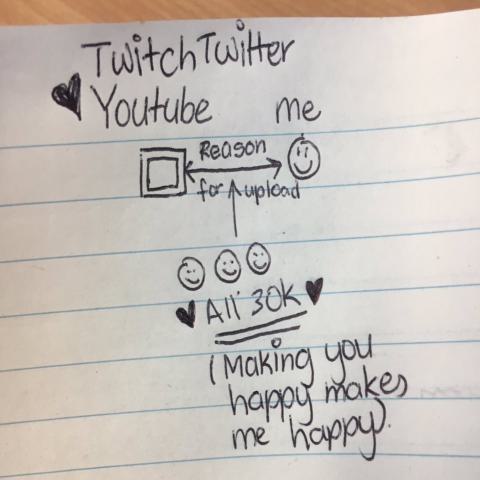 Twitch Twitter
Youtube me
Reason
for upload
All 30K
(Making you
happy makes
me happy).